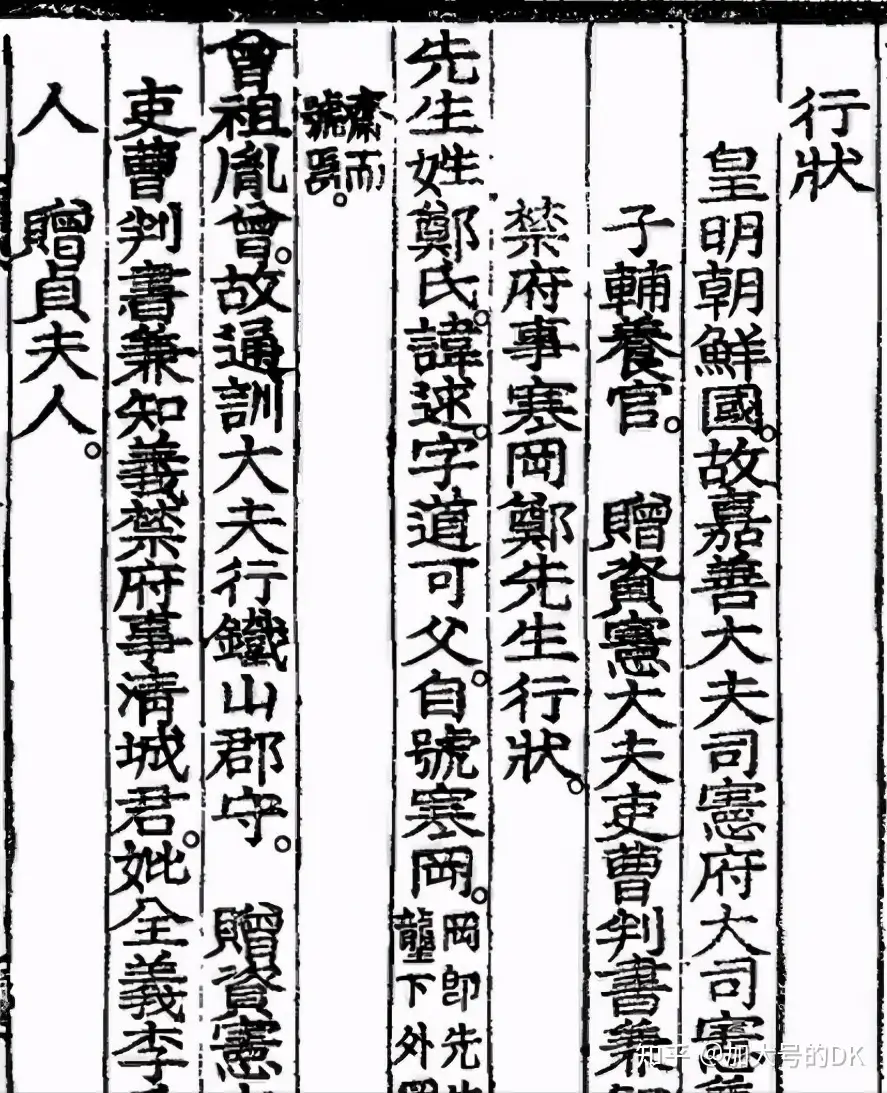 行狀
皇明朝鮮國。故嘉善大夫司憲府大司憲兼
子輔養官。 贈資憲大夫吏曹判書兼
禁府事寒岡鄭先生行狀。
先生姓鄭氏。諱逑。字道可父。自號寒岡。
岡卽先生
壟下外岡
齋而
號焉。
曾祖胤曾。故通訓大夫行鐵山郡守。 贈資憲
吏曹判書兼知義禁府事淸城君。妣全義李
人 贈貞夫人。
知乎 @加大号的DK